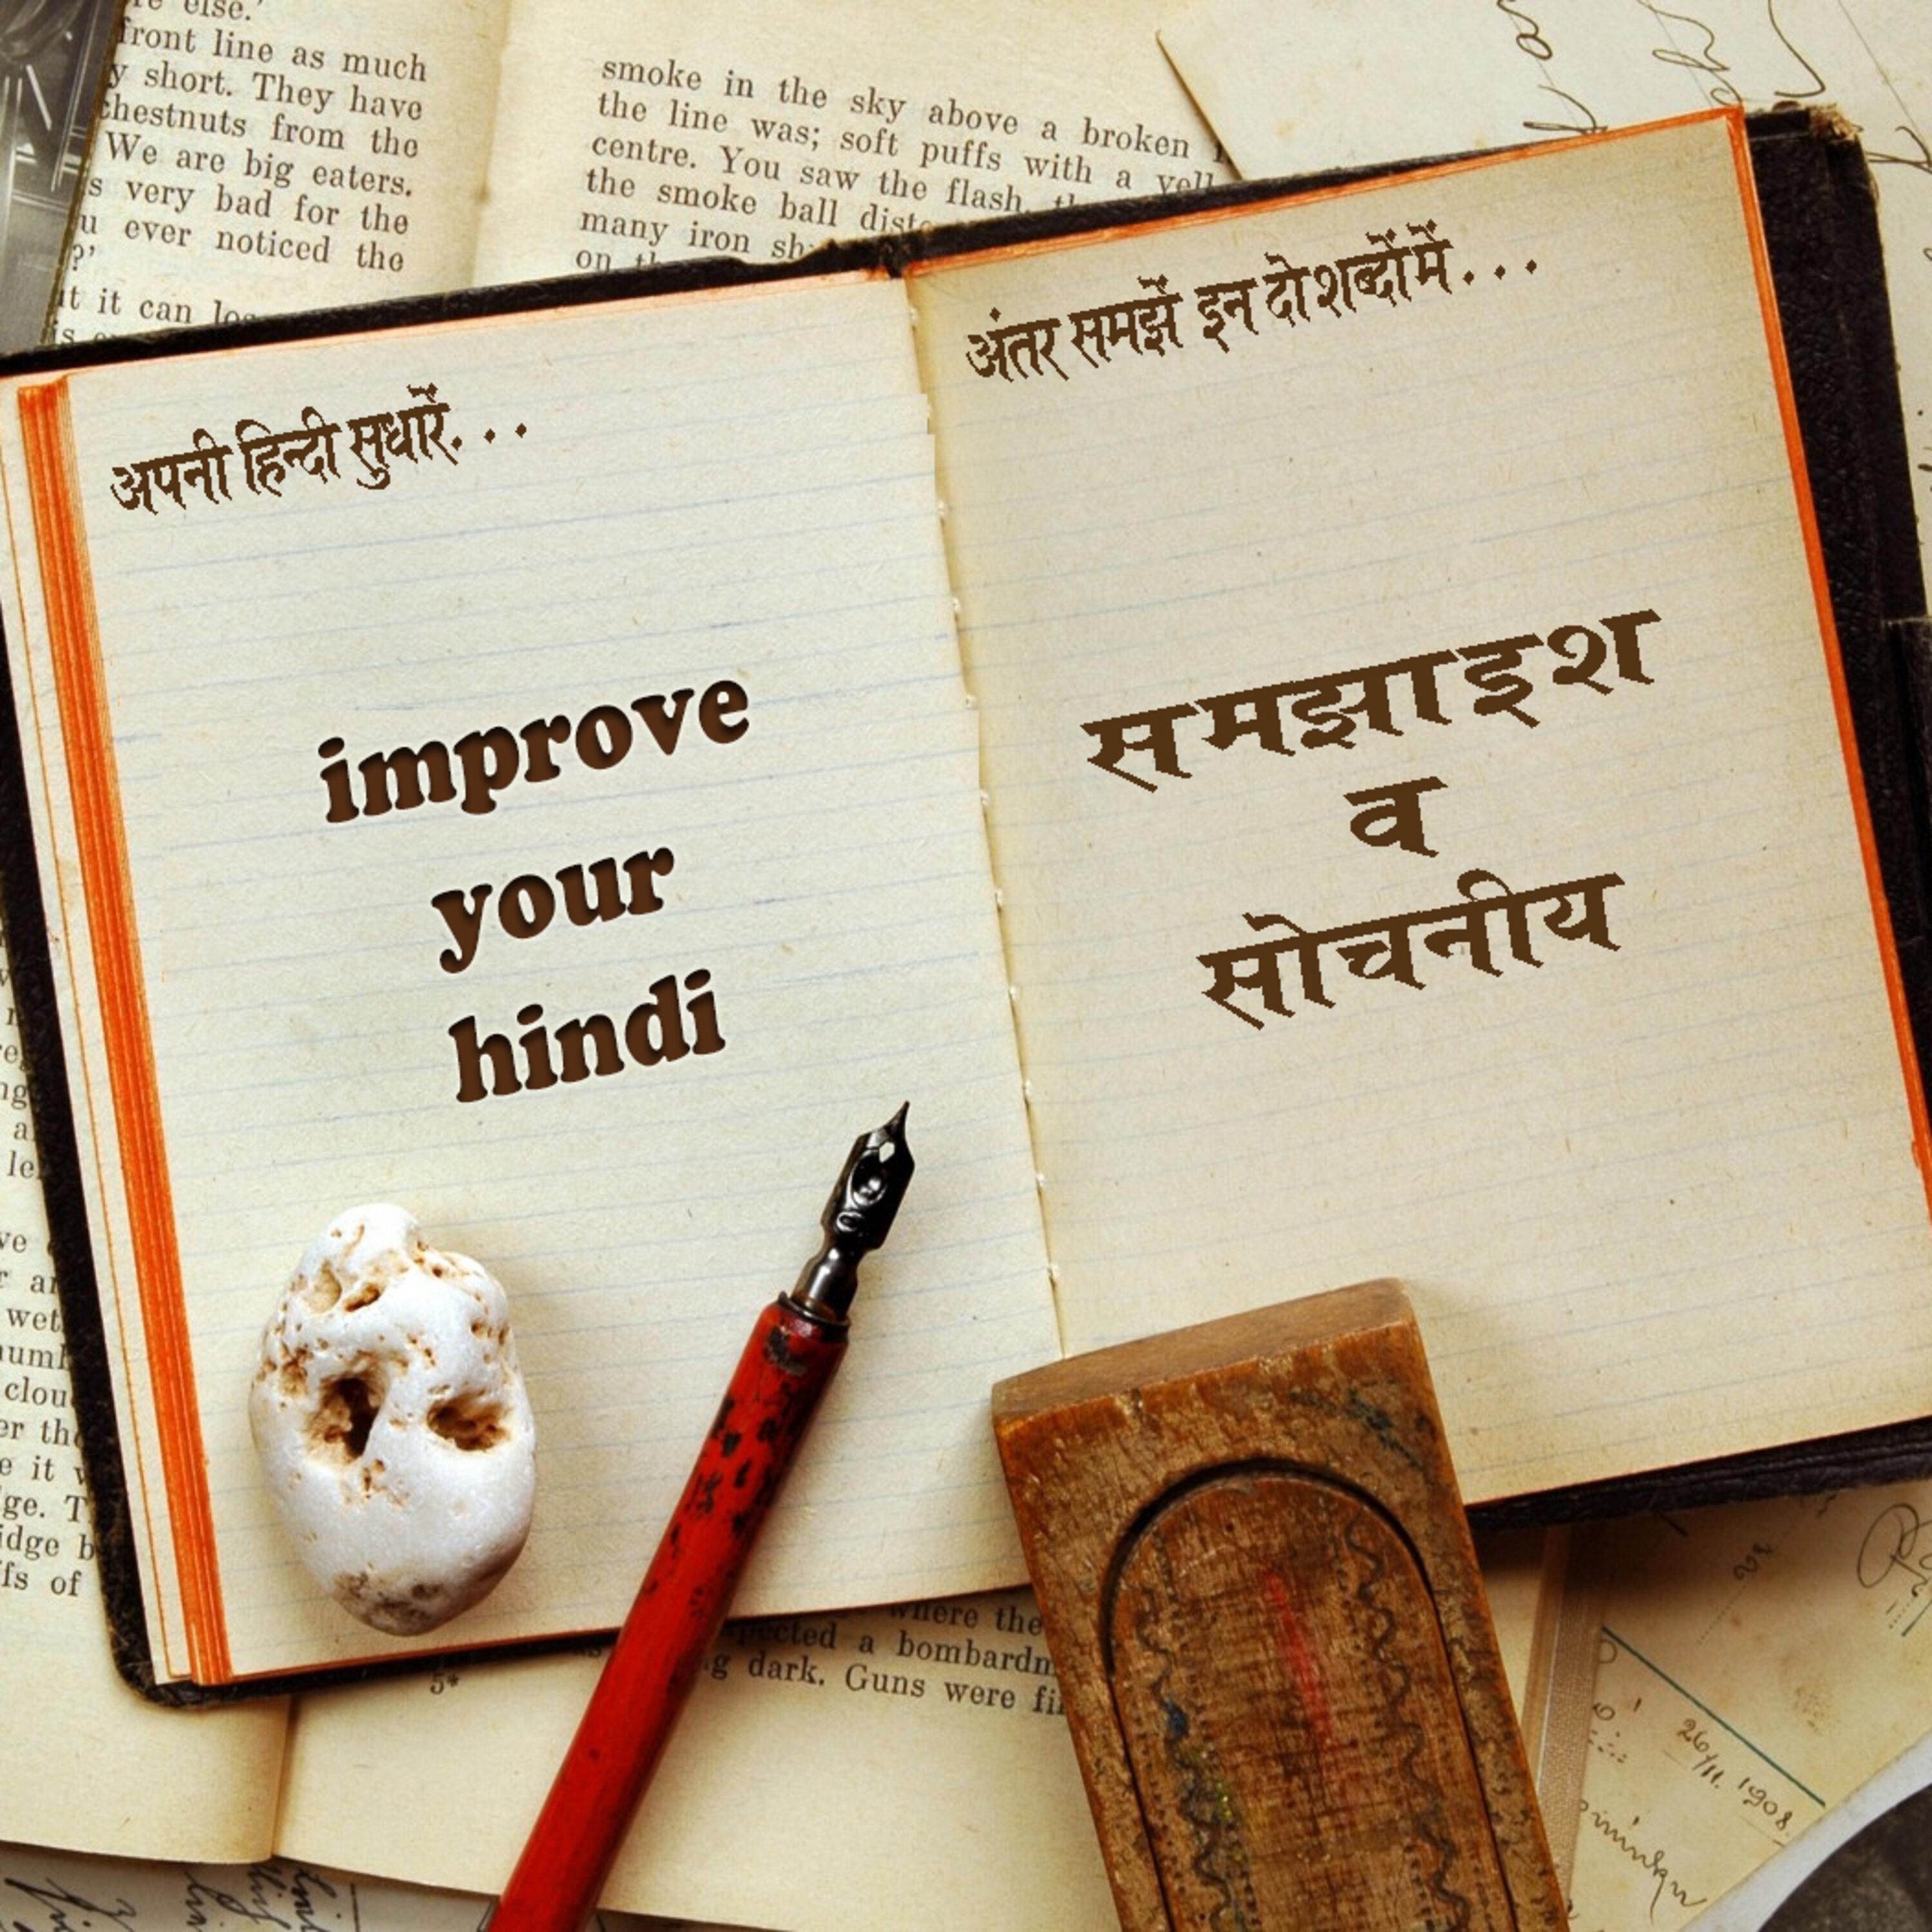 अपनी हिन्दी सुधारें...
improve
your
hindi
अंतर समझें इन दो शब्दों में...
समझाइश
व
सोचनीय
re else.'
front line as much
y short. They have
chestnuts from the
We are big eaters.
s very bad for the
u ever noticed the
?'
it it can
smoke in the sky above a broken
the line was; soft puffs with a
centre. You saw the flash
the smoke ball
many iron
on
wet
clou
er the
e it
ge. T
idge b
fs of
5*
where the
a bombardm
g dark. Guns were
26/11. 1908.